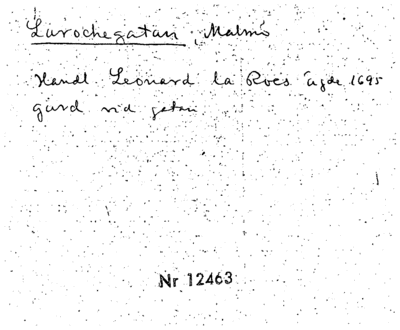 Larochegatan, Malmö
Handl Leonard la Roes ägde 1695
gård vid gatan
Nr 12463